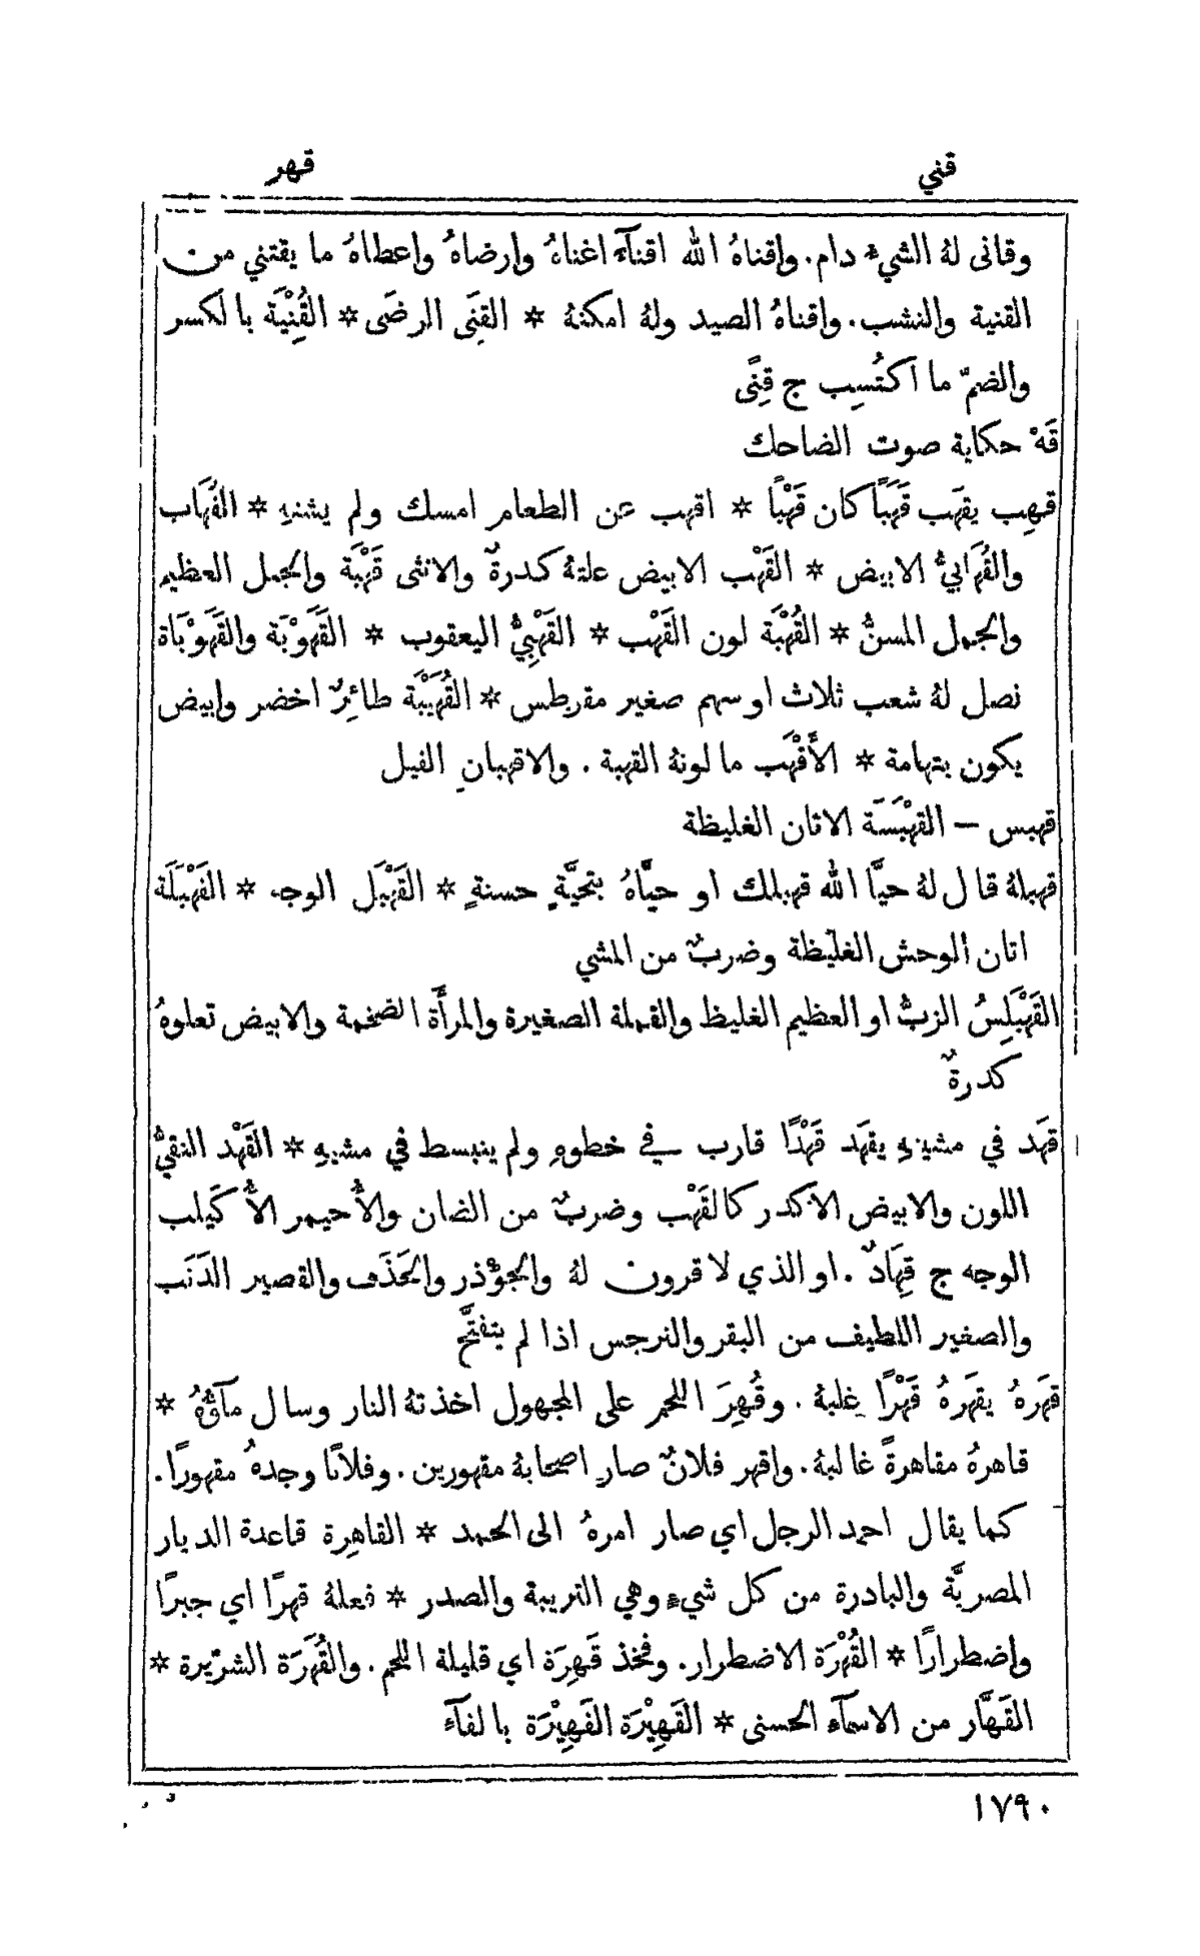 قني
قهر
وقانى لهُ الشيء دام. واقناهُ الله اقنآء اغناهُ وارضاهُ واعطاهُ ما يقتني من
القنية والنشب. واقناهُ الصيد ولهُ امكنهُ * القِنَى الرضَى * القُِنْيَة بالكسر
والضمّ ما اكتُسِب ج قِنًى
قَهْ حكاية صوت الضاحك
قهِب يقهَب قَهَبًا كان قَهْبًا * اقهب عن الطعام امسك ولم يشتهِ * القُهَاب
والقُهَابيُّ الابيض * القَهْب الابيض علتهُ كدرةٌ والانثى قَهْبَة والجبل العظيم
والجمل المسنُّ * القُهْبَة لون القَهْب * القَهْبِيُّ اليعقوب * القَهَوْبَة والقَهَوْبَاة
نصل لهُ شعب ثلاث او سهم صغير مقرطس * القُهَيْبَة طائِرٌ اخضر وابيض
يكون بتهامة * الأَقْهَب ما لونهُ القهبة . والاقهبانِ الفيل
قهبس – القَهْبَسَة الاتان الغليظة
قهبلهُ قال لهُ حيَّا الله قهبلك او حيَّاهُ بتحيَّةٍ حسنةٍ * القَهْبَل الوجه * القَهْبَلَة
اتان الوحش الغليظة وضربٌ من المشي
القَهْبَلِسُ الزبُّ او العظيم الغليظ والقملة الصغيرة والمرأَة الضخمة والابيض تعلوهُ
كدرةٌ
قهَد في مشيتهِ يقهَد قَهْدًا قارب في خطوهِ ولم ينبسط في مشيهِ * القَهْد النقيُّ
اللون والابيض الاكدر كالقَهْب وضربٌ من الضان والأُحيمر الأُكَيلب
الوجه ج قِهَادٌ . او الذي لا قرون لهُ والجؤذر والحَذَف والقصير الذَنَب
والصغير اللطيف من البقر والنرجس اذا لم يتفتَّح
قهَرهُ يقهَرهُ قَهْرًا غلبهُ . وقُهِرَ اللحم على المجهول اخذتهُ النار وسال مآؤُهُ *
قاهرهُ مقاهرةً غالبهُ. واقهر فلانٌ صار اصحابهُ مقهورين. وفلانًا وجدهُ مقهورًا.
كما يقال احمد الرجل اي صار امرهُ الى الحمد * القاهِرة قاعدة الديار
المصريَّة والبادرة من كل شيءٍ وهي التريبة والصدر * فعلهُ قهرًا اي جبرًا
واضطرارًا * القُهْرَة الاضطرار. وفخذ قَهِرَة اي قليلة اللحم. والقُهَرَة الشرّيرة *
القَهَّار من الاسمآء الحسنى * القَهِيْرَة الفَهِيْرَة بالفآء
١٧٩٠